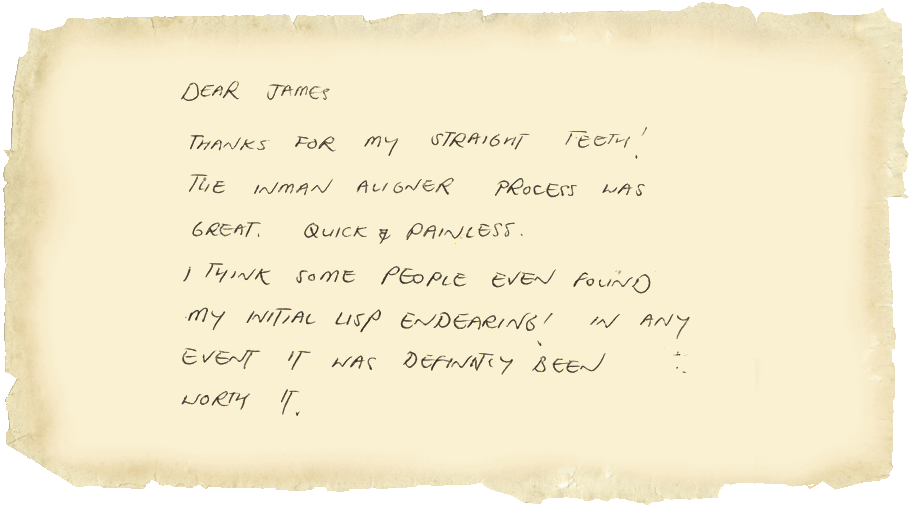 DEAR JAMES
THANKS FOR MY STRAIGHT TEETH!
THE INMAN ALIGNER PROCESS WAS
GREAT. QUICK & PAINLESS.
I THINK SOME PEOPLE EVEN FOUND
MY INITIAL LISP ENDEARING! IN ANY
EVENT IT WAS DEFINATLY BEEN
WORTH IT.